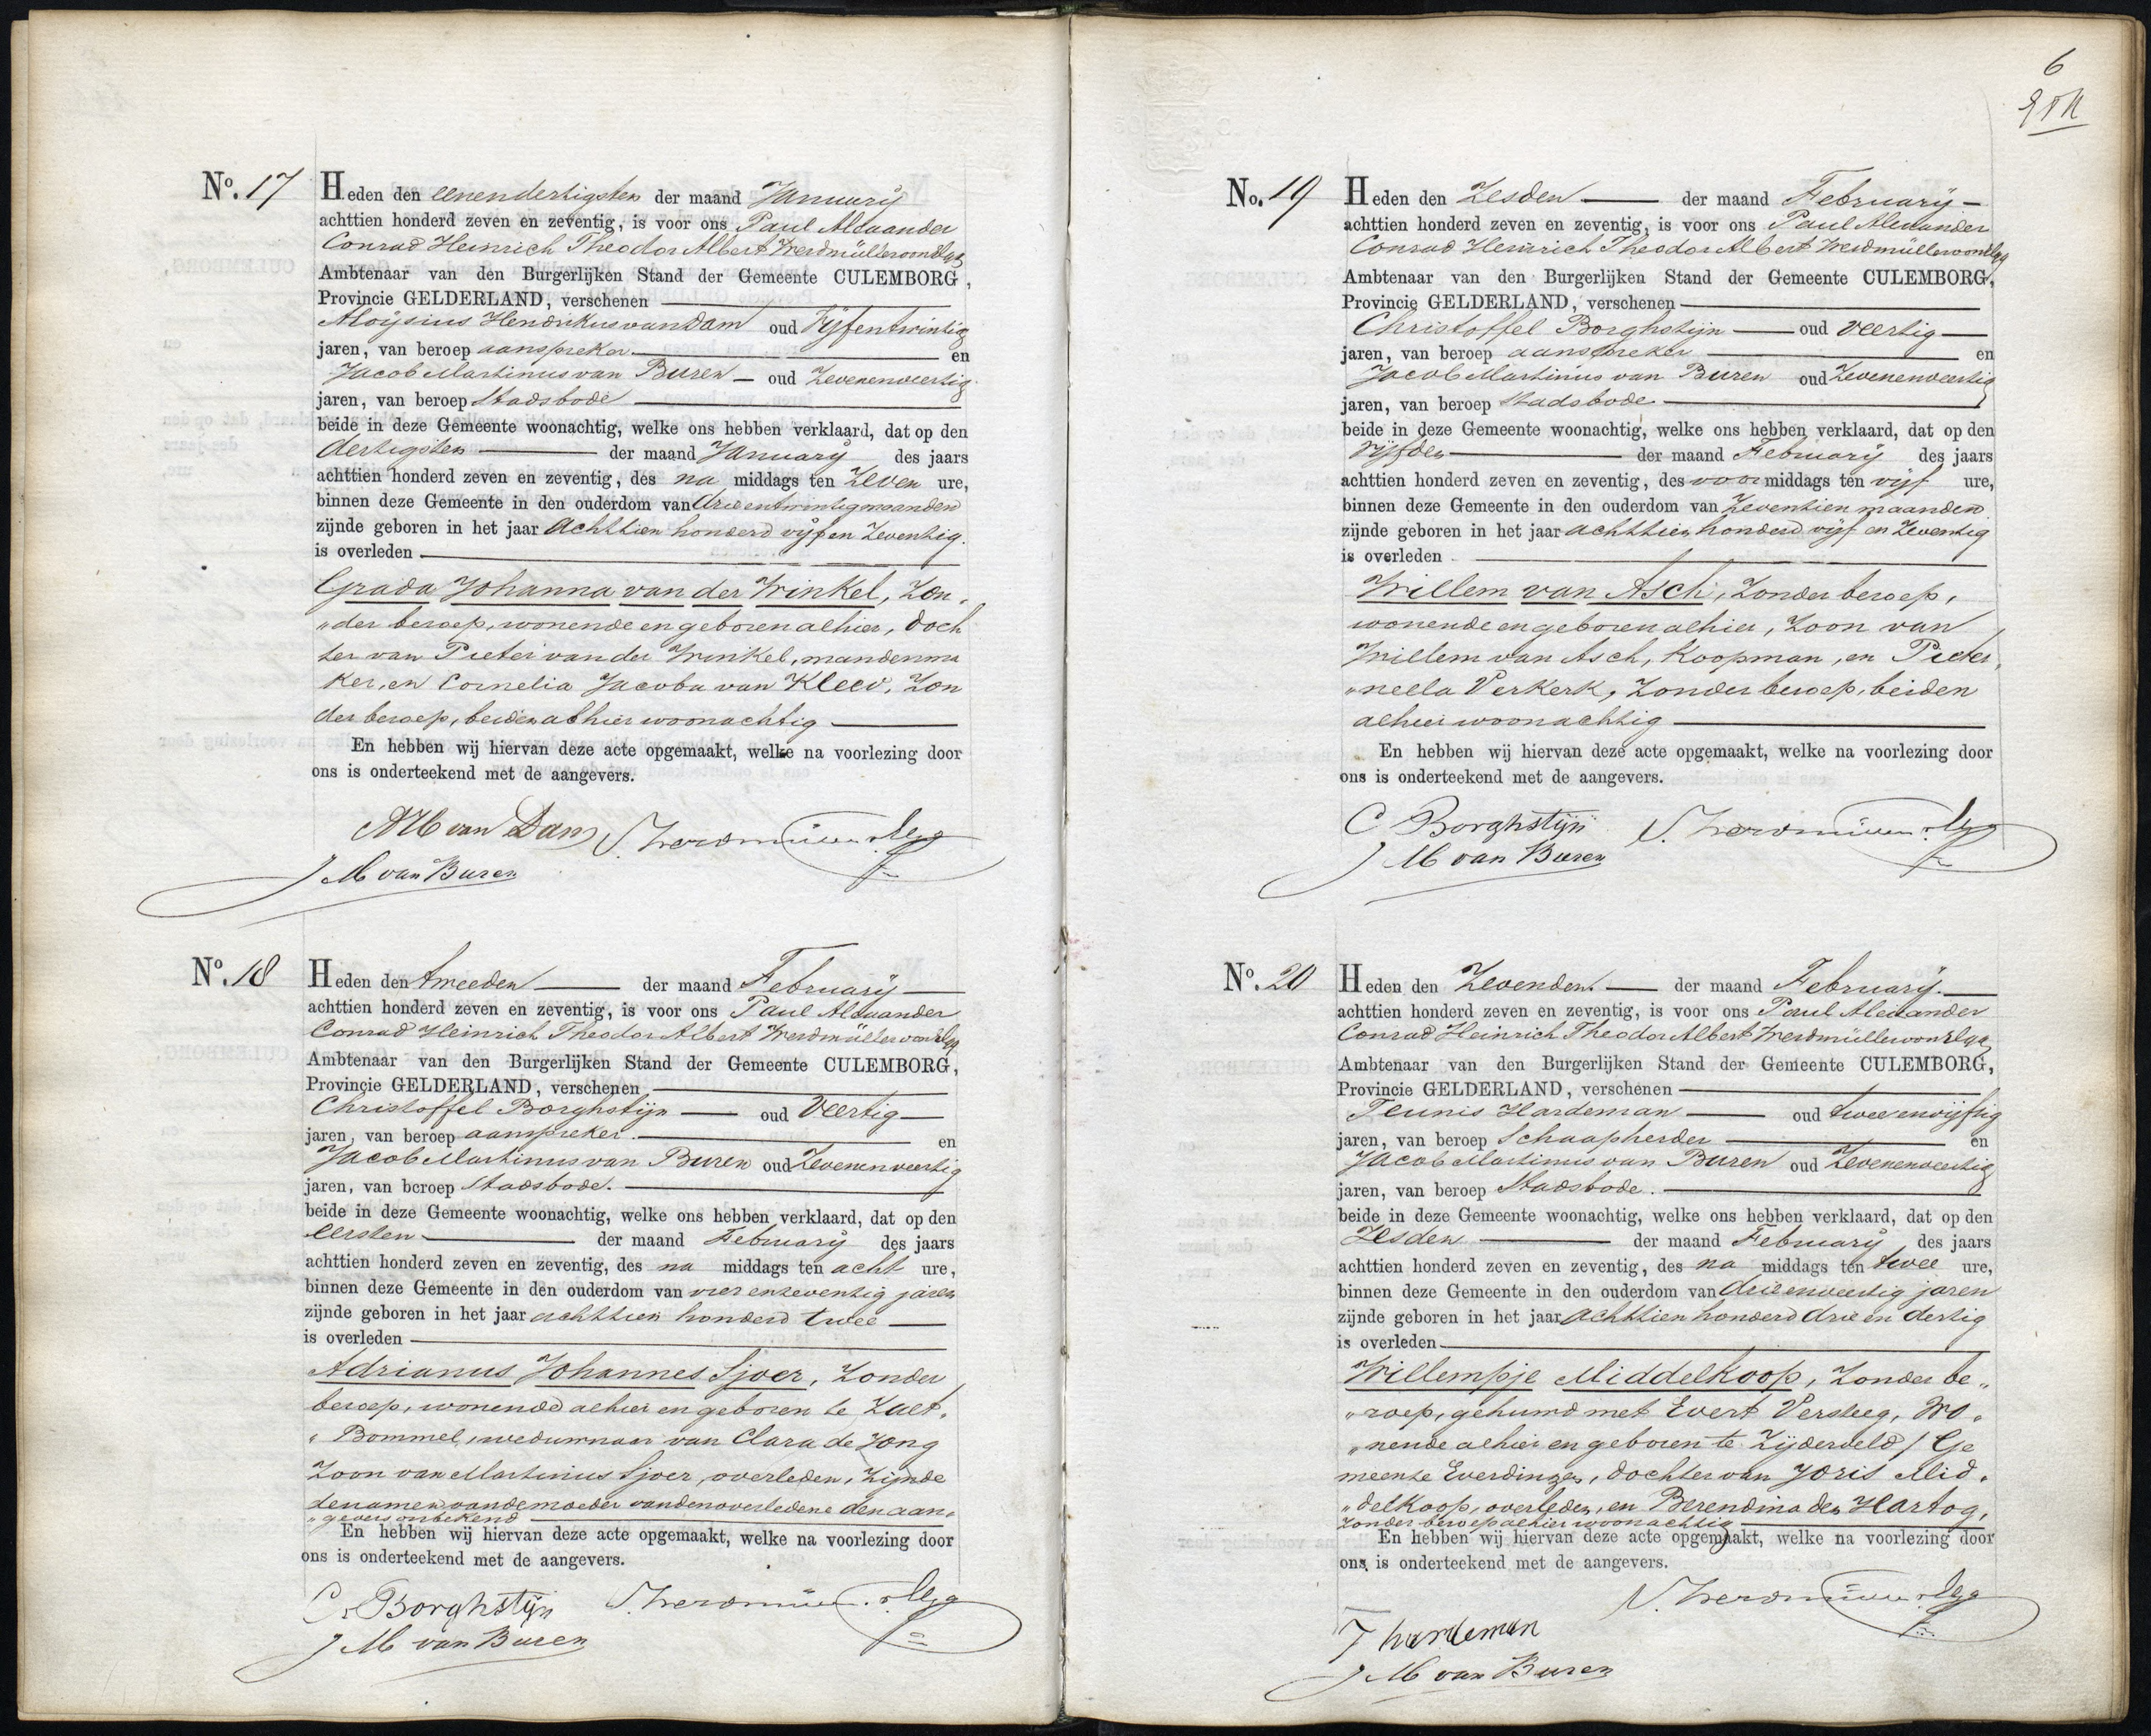 No. 17
Heden den eenendertigsten der maand January
achttien honderd zeven en zeventig, is voor ons Paul Alexander
Conrad Heinrich Theodor Albert Werdmüller von Elgg
Ambtenaar van den Burgerlijken Stand der Gemeente CULEMBORG,
Provincie GELDERLAND, verschenen
Aloÿsius Hendrikus van Dam oud Vijfentwintig
jaren, van beroep aanspreker en
Jacob Martinus van Buren oud Zevenenveertig
jaren, van beroep Stadsbode
beide in deze Gemeente woonachtig, welke ons hebben verklaard, dat op den
dertigsten der maand January des jaars
achttien honderd zeven en zeventig, des na middags ten Zeven ure,
binnen deze Gemeente in den ouderdom van drieentwintig maanden
zijnde geboren in het jaar Achttien honderd vijf en Zeventig.
is overleden
Grada Johanna van der Winkel, Zon„
„der beroep, wonende en geboren alhier, doch
ter van Pieter van der Winkel, mandenma
ker, en Cornelia Jacoba van Kleev, Zon
der beroep, beiden alhier woonachtig
En hebben wij hiervan deze acte opgemaakt, welke na voorlezing door
ons is onderteekend met de aangevers.
AH van Dam
J M van Buren
No. 18
Heden den tweeden der maand February
achttien honderd zeven en zeventig, is voor ons Paul Alexander
Conrad Heinrich Theodor Albert Werdmüller von Elgg
Ambtenaar van den Burgerlijken Stand der Gemeente CULEMBORG,
Provincie GELDERLAND, verschenen
Christoffel Borghstijn oud Veertig
jaren, van beroep aanspreker. en
Jacob Martinus van Buren oud Zevenenveertig
jaren, van beroep Stadsbode.
beide in deze Gemeente woonachtig, welke ons hebben verklaard, dat op den
eersten der maand February des jaars
achttien honderd zeven en zeventig, des na middags ten acht ure,
binnen deze Gemeente in den ouderdom van vier enzeventig jaren
zijnde geboren in het jaar achttien honderd twee
is overleden
Adrianus Johannes Sjoer, Zonder
beroep, wonende alhier en geboren te Zalt„
„Bommel, weduwnaar van Clara de Jong
Zoon van Martinus Sjoer, overleden, Zijnde
de namen van de moeder van den overledene den aan„
„gevers onbekend
En hebben wij hiervan deze acte opgemaakt, welke na voorlezing door
ons is onderteekend met de aangevers.
C. Borghstijn
J M van Buren
6
No. 19
Heden den Zesden der maand February
achttien honderd zeven en zeventig, is voor ons Paul Alexander
Conrad Heinrich Theodor Albert Werdmüller von Elgg
Ambtenaar van den Burgerlijken Stand der Gemeente CULEMBORG,
Provincie GELDERLAND, verschenen
Christoffel Borghstijn oud veertig
jaren, van beroep aanspreker en
Jacob Martinus van Buren oud Zevenenveertig
jaren, van beroep Stadsbode.
beide in deze Gemeente woonachtig, welke ons hebben verklaard, dat op den
vijfden der maand February des jaars
achttien honderd zeven en zeventig, des voor middags ten vijf ure,
binnen deze Gemeente in den ouderdom van Zeventien maanden
zijnde geboren in het jaar achttien honderd vijf en Zeventig
is overleden
Willem van Asch, Zonder beroep,
wonende en geboren alhier, Zoon van
Willem van Asch, Koopman, en Pieter„
„nella Verkerk, Zonder beroep, beiden
alhier woonachtig
En hebben wij hiervan deze acte opgemaakt, welke na voorlezing door
ons is onderteekend met de aangevers.
C Borghstijn
J M van Buren
No. 20
Heden den Zevenden. der maand February.
achttien honderd zeven en zeventig, is voor ons Paul Alexander
Conrad Heinrich Theodor Albert Werdmüller von Elgg
Ambtenaar van den Burgerlijken Stand der Gemeente CULEMBORG,
Provincie GELDERLAND, verschenen
Teunis Hardeman oud twee envijftig
jaren, van beroep Schaapherder en
Jacob Martinus van Buren oud Zevenenveertig
jaren, van beroep Stadsbode.
beide in deze Gemeente woonachtig, welke ons hebben verklaard, dat op den
Zesden der maand February des jaars
achttien honderd zeven en zeventig, des na middags ten twee ure,
binnen deze Gemeente in den ouderdom van drieenveertig jaren
zijnde geboren in het jaar Achttien honderd drie en dertig
is overleden
Willempje Middelkoop, Zonder be„
„roep, gehuwd met Evert Versteeg, wo„
„nende alhier en geboren te Zijderveld / Ge
meente Everdingen, dochter van Joris Mid„
„delkoop, overleden, en Berendina den Hartog,
Zonder beroep alhier woonachtig
En hebben wij hiervan deze acte opgemaakt, welke na voorlezing door
ons is onderteekend met de aangevers.
T hardeman
J M van Buren